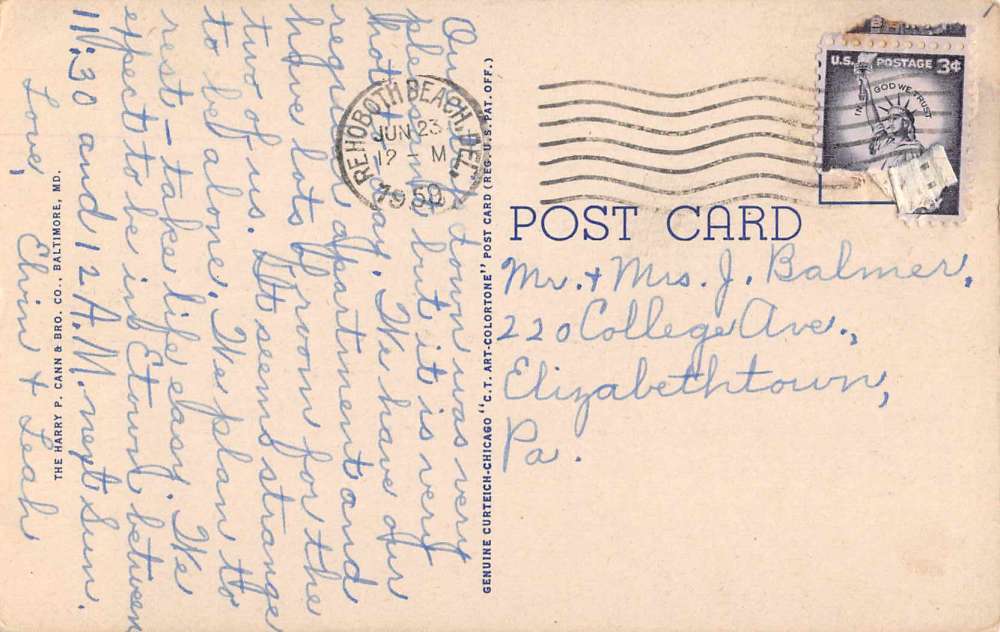 Our trip down was very
pleasant but it is very
hot today. We have our
regular apartment and
have lots of room for the
two of us. It seems strange
to be alone. We plan to
rest - take life easy. We
expect to be in Etown between
11:30 and 12 A.M. next Sun.
Love,
Elvin + Leah
THE HARRY P. CANN & BRO. CO., BALTIMORE, MD.
GENUINE CURTEICH-CHICAGO "C.T. ART-COLORTONE" POST CARD (REG. U.S. PAT. OFF.)
REHOBOTH BEACH, DEL.
JUN 23
12 - M
1958
U.S. POSTAGE 3¢
IN GOD WE TRUST
POST CARD
Mr. + Mrs. J. Balmer,
220 College Ave.,
Elizabethtown,
Pa.